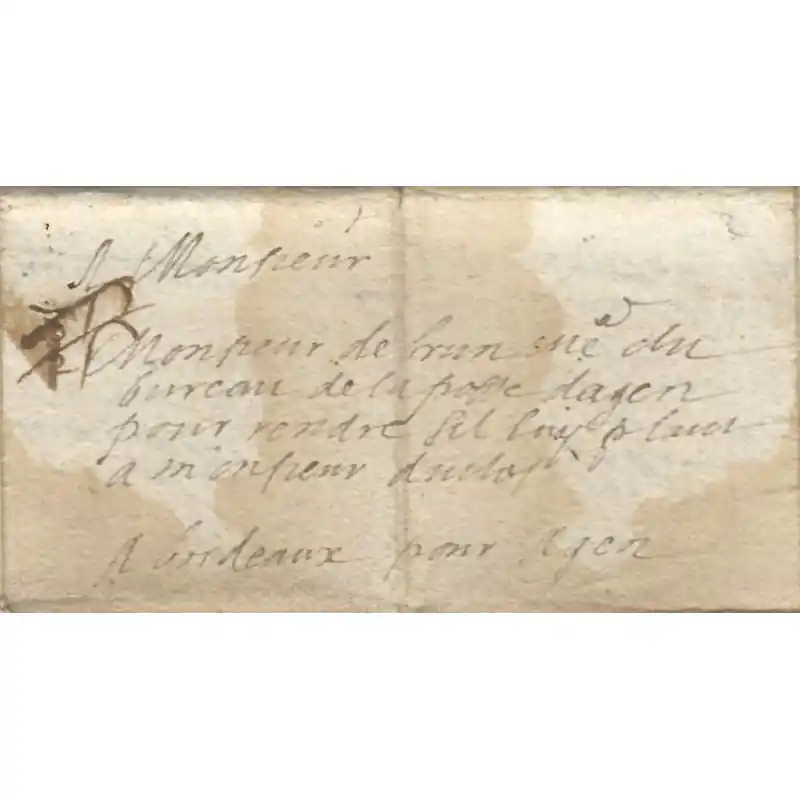 A Monsieur
Monsieur de brun me du
bureau de la poste dagen
pour rendre sil luy plaict
a monsieur duclos
A bordeaux pour Agen